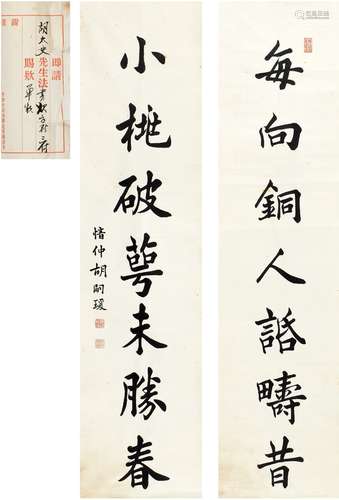 每向銅人話疇昔
小桃破萼未勝春
愔仲胡嗣瑗
即請
胡太史先生法書
賜欵單欵